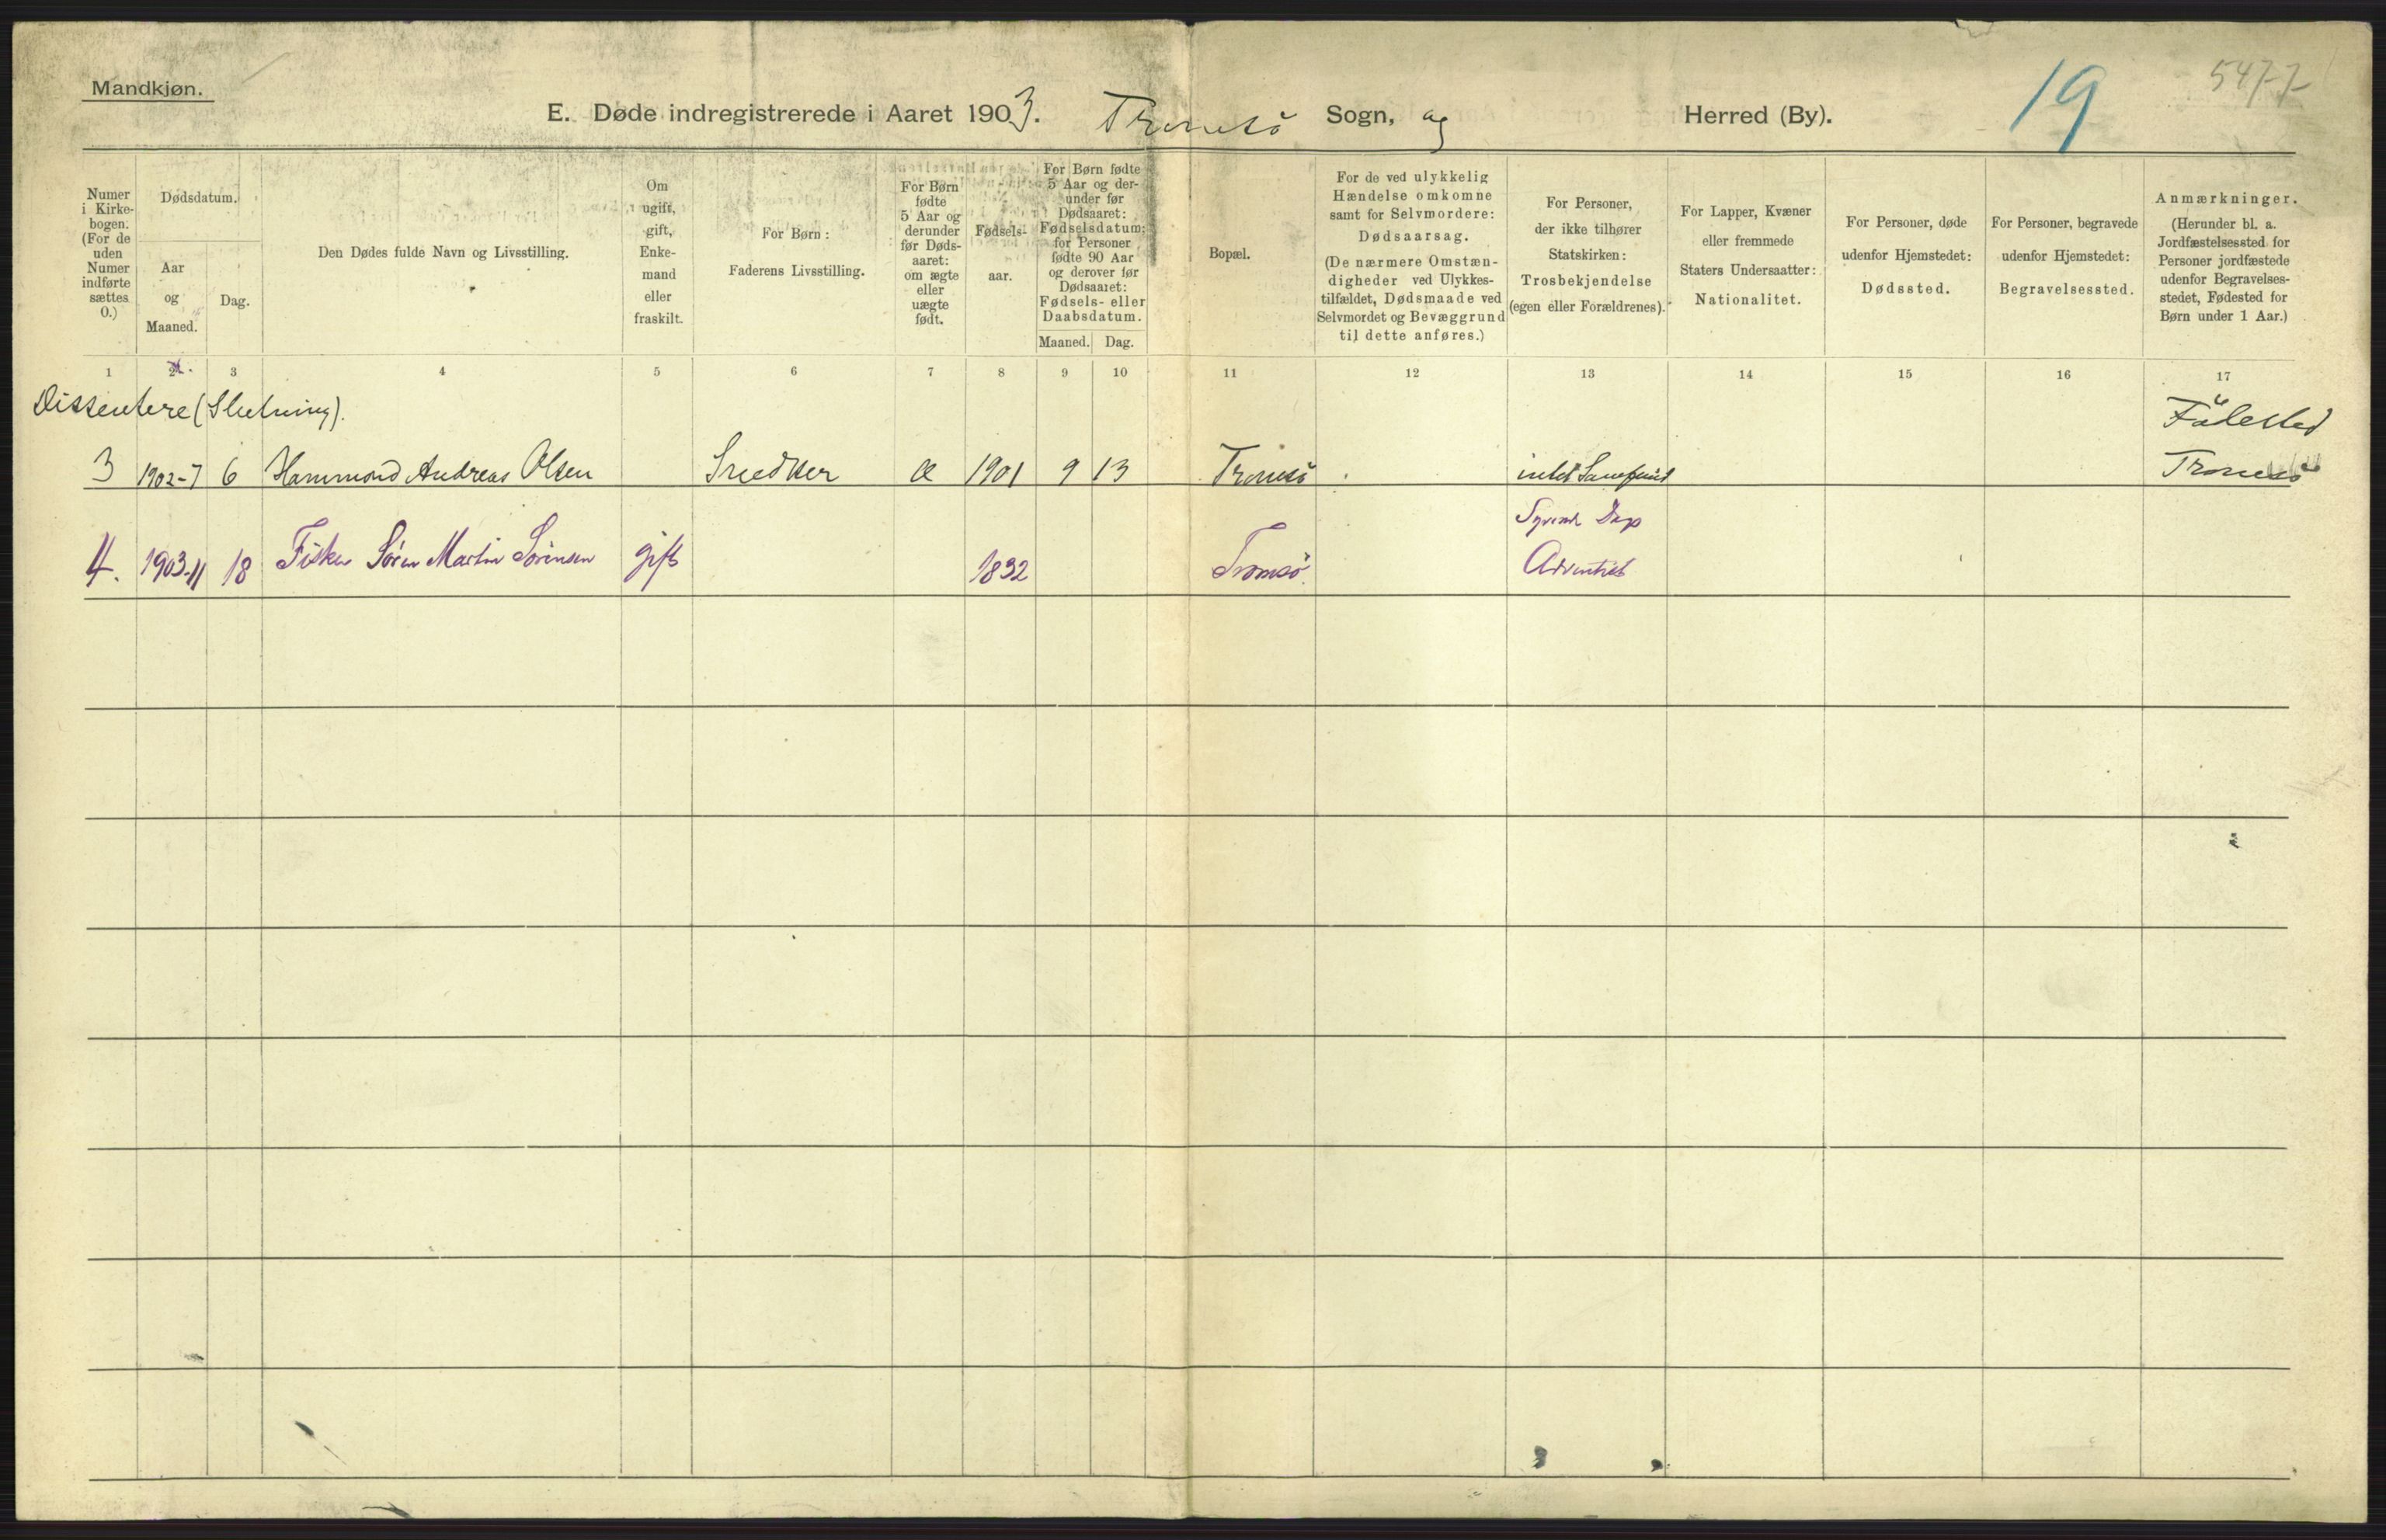 Mandkjøn.
19
547-7
E. Døde indregistrerede i Aaret 1903. Tromsö Sogn, og Herred (By).
Numer
i Kirke-
bogen.
(For de
uden
Numer
indførte
sættes
0.)
Dødsdatum.
Aar
og
Maaned.
Dag.
Den Dødes fulde Navn og Livsstilling.
Om
ugift,
gift,
Enke-
mand
eller
fraskilt.
For Børn:
Faderens Livsstilling.
For Børn
fødte
5 Aar og
derunder
før Døds-
aaret:
om ægte
eller
uægte
født.
Fødsels-
aar.
For Børn fødte
5 Aar og der-
under før
Dødsaaret:
Fødselsdatum;
for Personer
fødte 90 Aar
og derover før
Dødsaaret:
Fødsels- eller
Daabsdatum.
Maaned. Dag.
Bopæl.
For de ved ulykkelig
Hændelse omkomne
samt for Selvmordere:
Dødsaarsag.
(De nærmere Omstæn-
digheder ved Ulykkes-
tilfældet, Dødsmaade ved
Selvmordet og Bevæggrund
til dette anføres.)
For Personer,
der ikke tilhører
Statskirken:
Trosbekjendelse
(egen eller Forældrenes).
For Lapper, Kvæner
eller fremmede
Staters Undersaatter:
Nationalitet.
For Personer, døde
udenfor Hjemstedet:
Dødssted.
For Personer, begravede
udenfor Hjemstedet:
Begravelsessted.
Anmærkninger.
(Herunder bl. a.
Jordfæstelsessted for
Personer jordfæstede
udenfor Begravelses-
stedet, Fødested for
Børn under 1 Aar.)
1 2 3 4 5 6 7 8 9 10 11 12 13 14 15 16 17
Dissentere (Slutning).
Födested
3 1902-7 6 Hammond Andreas Olsen Snedker Æ 1901 9 13 Tromsö intet Samfund Tromsö
Syvende Dags
4. 1903-11 18 Fisker Sören Martin Sörensen gift 1832 Tromsö. Adventist